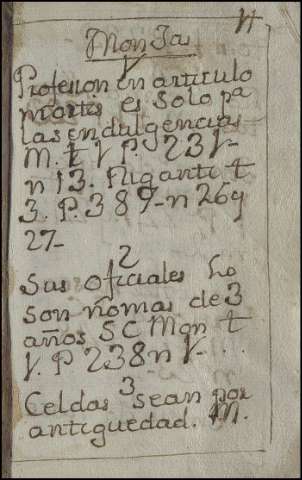 Monjas
Profesion en articulo
mortis es solo pa
las endulgencias
M. t 1. P. 231-
n 13. Niganti t
3. P. 389-n 26 y
27-
2
Sus oficiales lo
son nomas de 3
años S C Mon t
1. P 238 n 1- . . .
3
Celdas sean por
antiguedad. M.